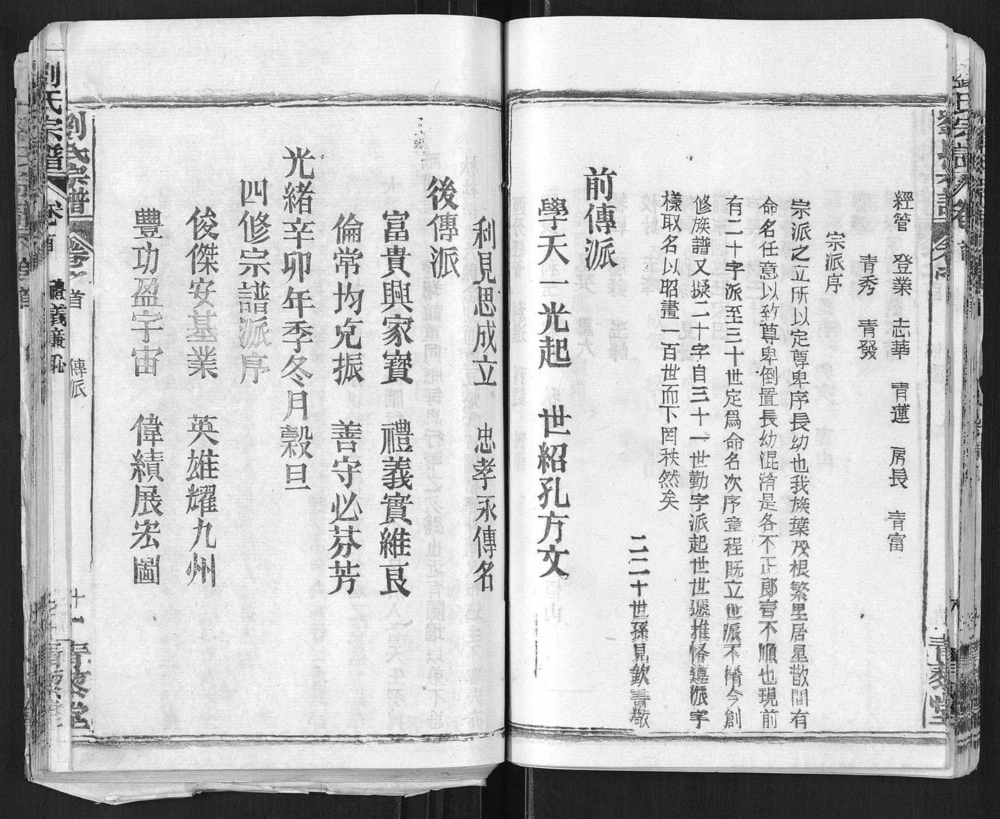 經管 登業 志華 青蓮 房長 青富
青秀 青發
宗派序
宗派之立所以定尊卑序長幼也我族葉茂根繁里居星散間有
命名任意以致尊卑倒置長幼混淆是各不正郎言不順也現前
有二十字派至三十世定爲命名次序章程既立世派不淆今創
修族譜又擬二十字自三十一世勤字派起世世遞推恪遵派字
樣取名以昭晝一百世而下罔秩然矣
二二十世孫見欽書敬
前傳派
學天一光起 世紹孔方文
利見思成立 忠孝永傳名
後傳派
富貴興家寶 禮義實維良
倫常均克振 善守必芬芳
光緒辛卯年季冬月穀旦
四修宗譜派序
俊傑安基業 英雄耀九州
豐功盈宇宙 偉績展宏圖
劉氏宗譜 卷首 傳派 十一 青藜堂
劉氏宗譜 卷首 禮義廉恥